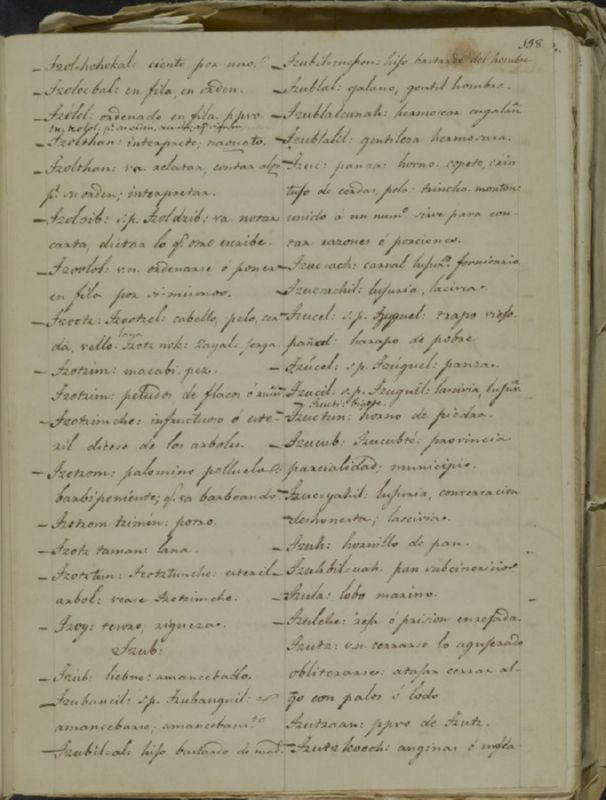 158.
– Tzol-hohekal: ciento por uno.
– Tzolocbal: en fila, en orden.
– Tzólol: ordenado en fila. ppvo.
– Tzolthan: interprete; naguato.
– Tzolthan: va. relatar, contar algo
pr. su orden; interpretar.
– Tzolzib: s.p. Tzoldzib: va. notar
carta, dictar lo q. otro escribe.
– Tzoolol: vn. ordenarse ó poner
en fila por si-mismos.
– Tzootz: Tzootzel: cabello, pelo, cer
da, vello. Tzotz nok: Zayal: jerga
– Tzotzim: macabi pez.
Tzotzim: peludos de flacos ó ruin
– Tzotzimche: infructuoso ó este-
ril dicese de los arboles.
– Tzotzom: palomino polluelo
barbiponiente; q. va barbeando
– Tzotzom tzimin: potro.
– Tzotz taman: lana.
– Tzotztun: Tzotztunche: esteril
arbol: vease Tzotzimche.
– Tzoy: tesoro, riqueza.
Tzub:
– Tzub: liebre: amancebado.
– Tzubancil: s.p. Tzubanguil:
amancebarse; amancebamto.
– Tzubil-al: hijo bastardo de mad.
– hijo bastardo del hombre
– Tzublal: galano, gentil hombre.
– Tzublalcunah: hermosear engalan
– Tzublalil: gentileza hermosura.
– Tzuc: panza: horno. copete, crin
tufo de cerdas, pelo: trincho. monton:
unido á un numo. sirve para con-
tar razones ó porciones.
– Tzuc-ach: carnal lujur. fornicario
– Tzucachil: lujuria, lacivia.
– Tzucel: s.p. Tzuguel: trapo viejo.
pañal: harapo de pobre
– Tzúcel: s.p. Tzúguel: panza.
– Tzucil: s.p. Tzuguil: lascivia, lujur.
– Tzuctun: horno de piedra.
– Tzucub: Tzucubté: provincia
parcialidad; municipio.
– Tzucyahil: lujuria, conversacion
deshonesta; lascivia.
– Tzuh: hornillo de pan.
– Tzuhbil-uah: pan subcinericio
– Tzula: lobo marino.
– Tzulche: reja ó prision enrejada.
Tzutz: vn. cerrarse lo agujerado
obliterarse: atajar cerrar al-
go con palos ó lodo
– Tzutzaan: ppvo de Tzutz.
– Tzutzkooch: anginas ó infla-